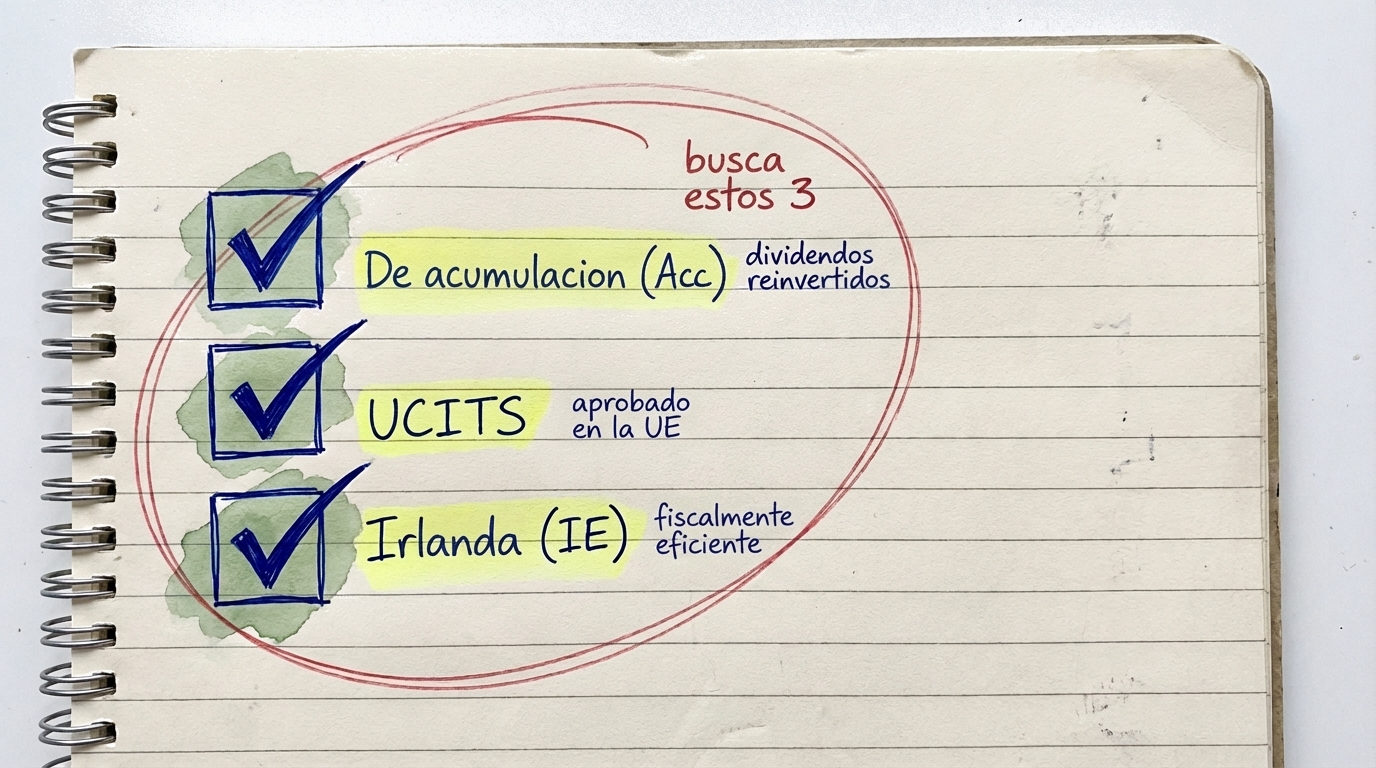 busca
estos 3
De acumulacion (Acc)
dividendos
reinvertidos
UCITS
aprobado
en la UE
Irlanda (IE)
fiscalmente
eficiente